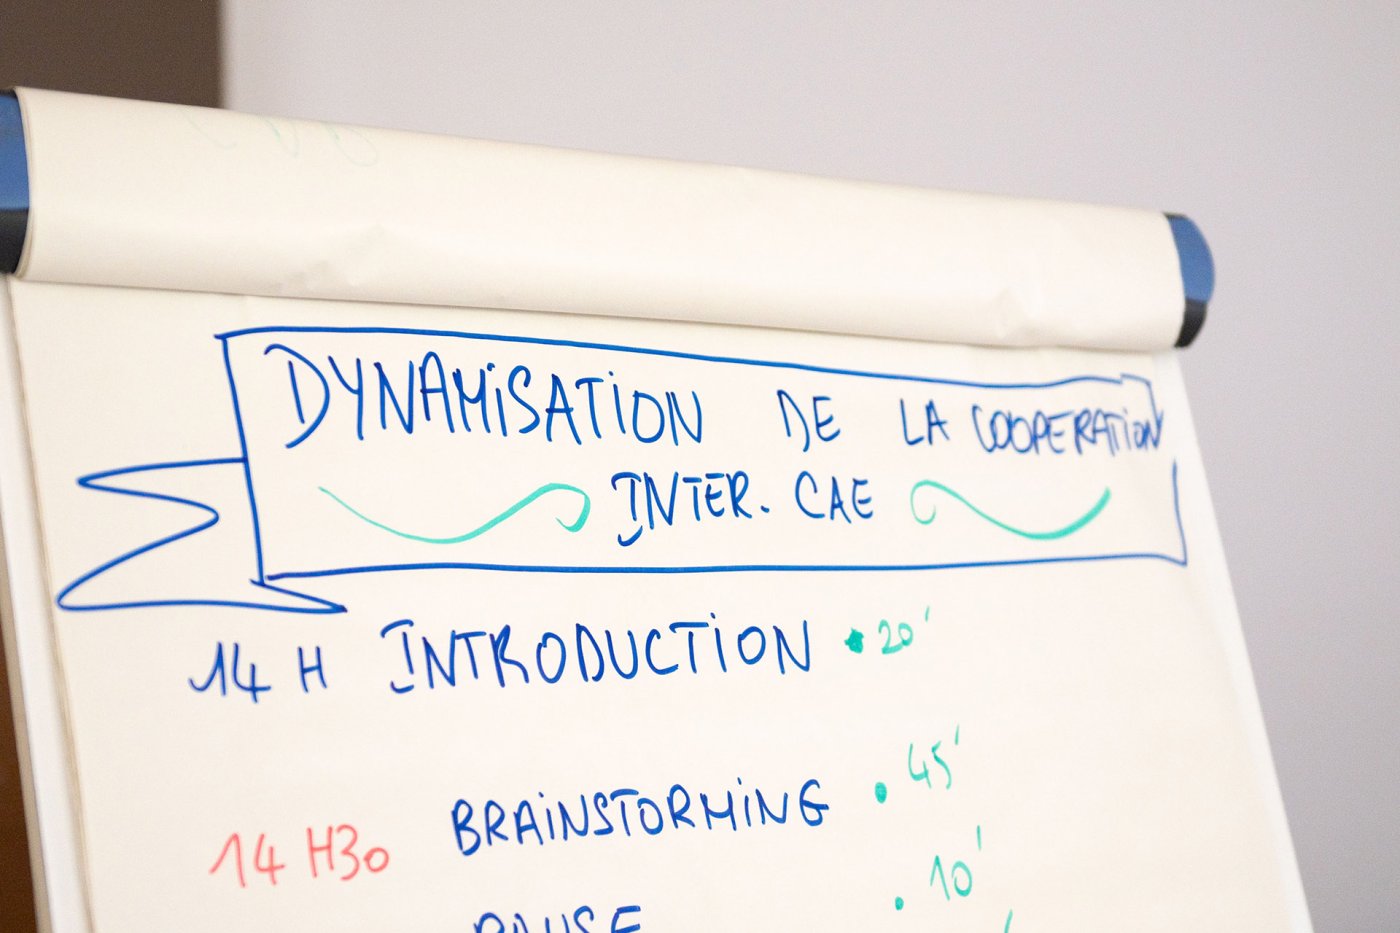 DYNAMiSATiON DE LA COOPERATiON
INTER. CAE
14 H INTRODUCTiON • 20'
14 H30 BRAiNSTORMiNG • 45'
PAUSE • 10'